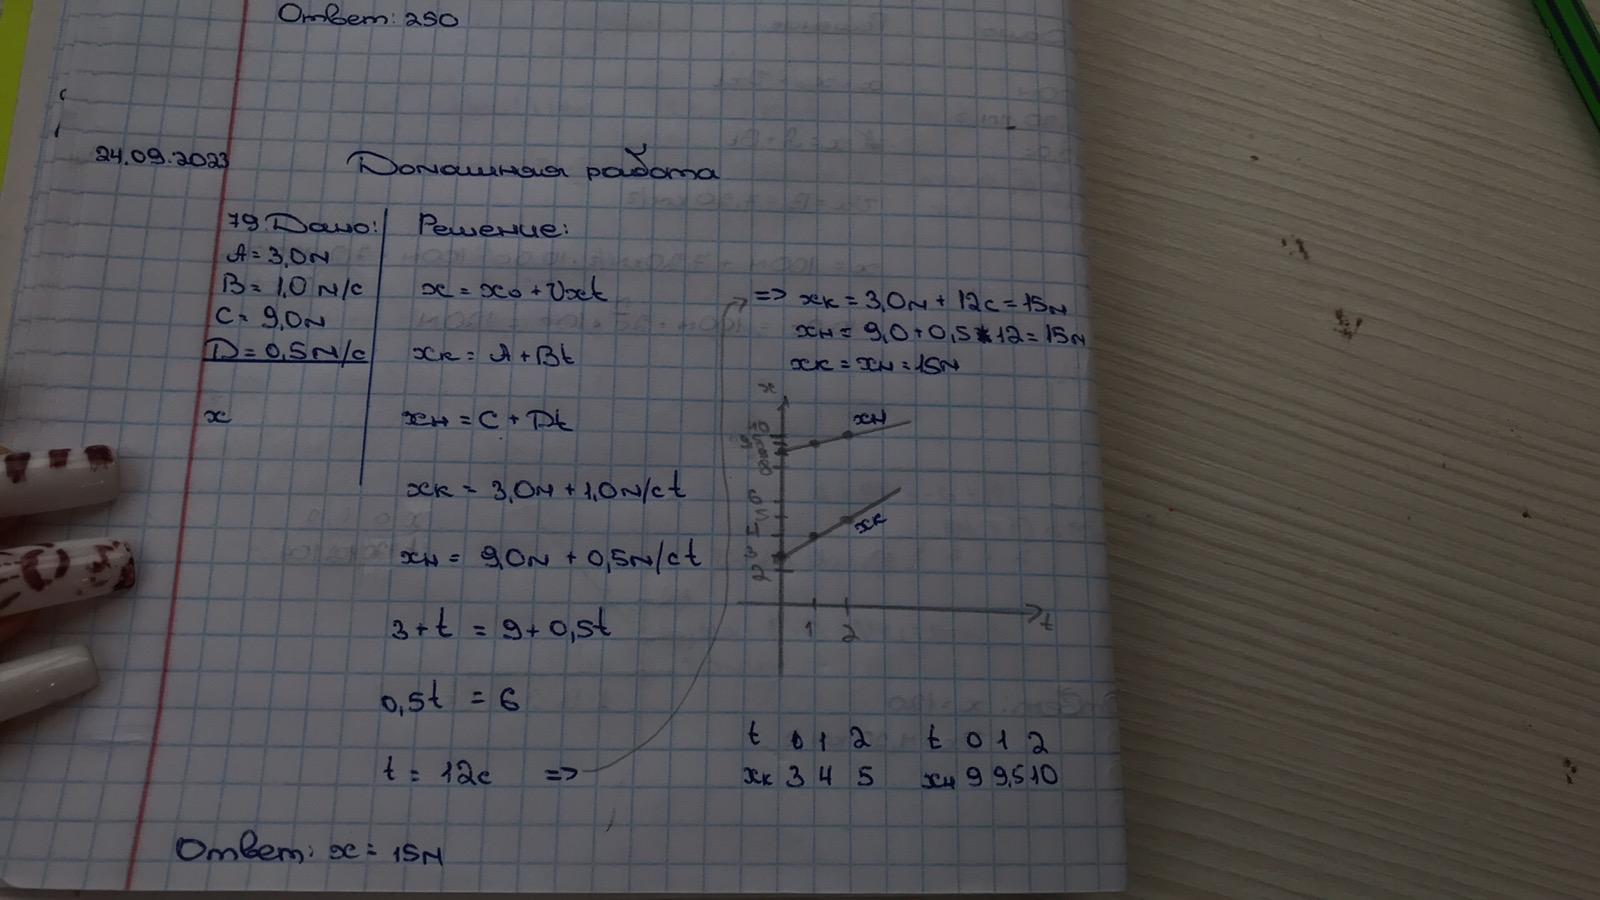 Ответ: 250
24.09.2023
Домашная работа
79 Дано:
A = 3,0м
B = 1,0 м/с
C = 9,0м
D = 0,5м/с
x
Решение:
x = x0 + Vxt
xк = A + Bt
xн = C + Dt
xк = 3,0м + 1,0м/сt
xн = 9,0м + 0,5м/сt
3 + t = 9 + 0,5t
0,5t = 6
t = 12с =>
=> xк = 3,0м + 12с = 15м
xн = 9,0 + 0,5 * 12 = 15м
xк = xн = 15м
x
xн
8
6
5
xк
3
2
1 2 t
t 0 1 2
xк 3 4 5
t 0 1 2
xн 9 9,5 10
Ответ: x = 15м